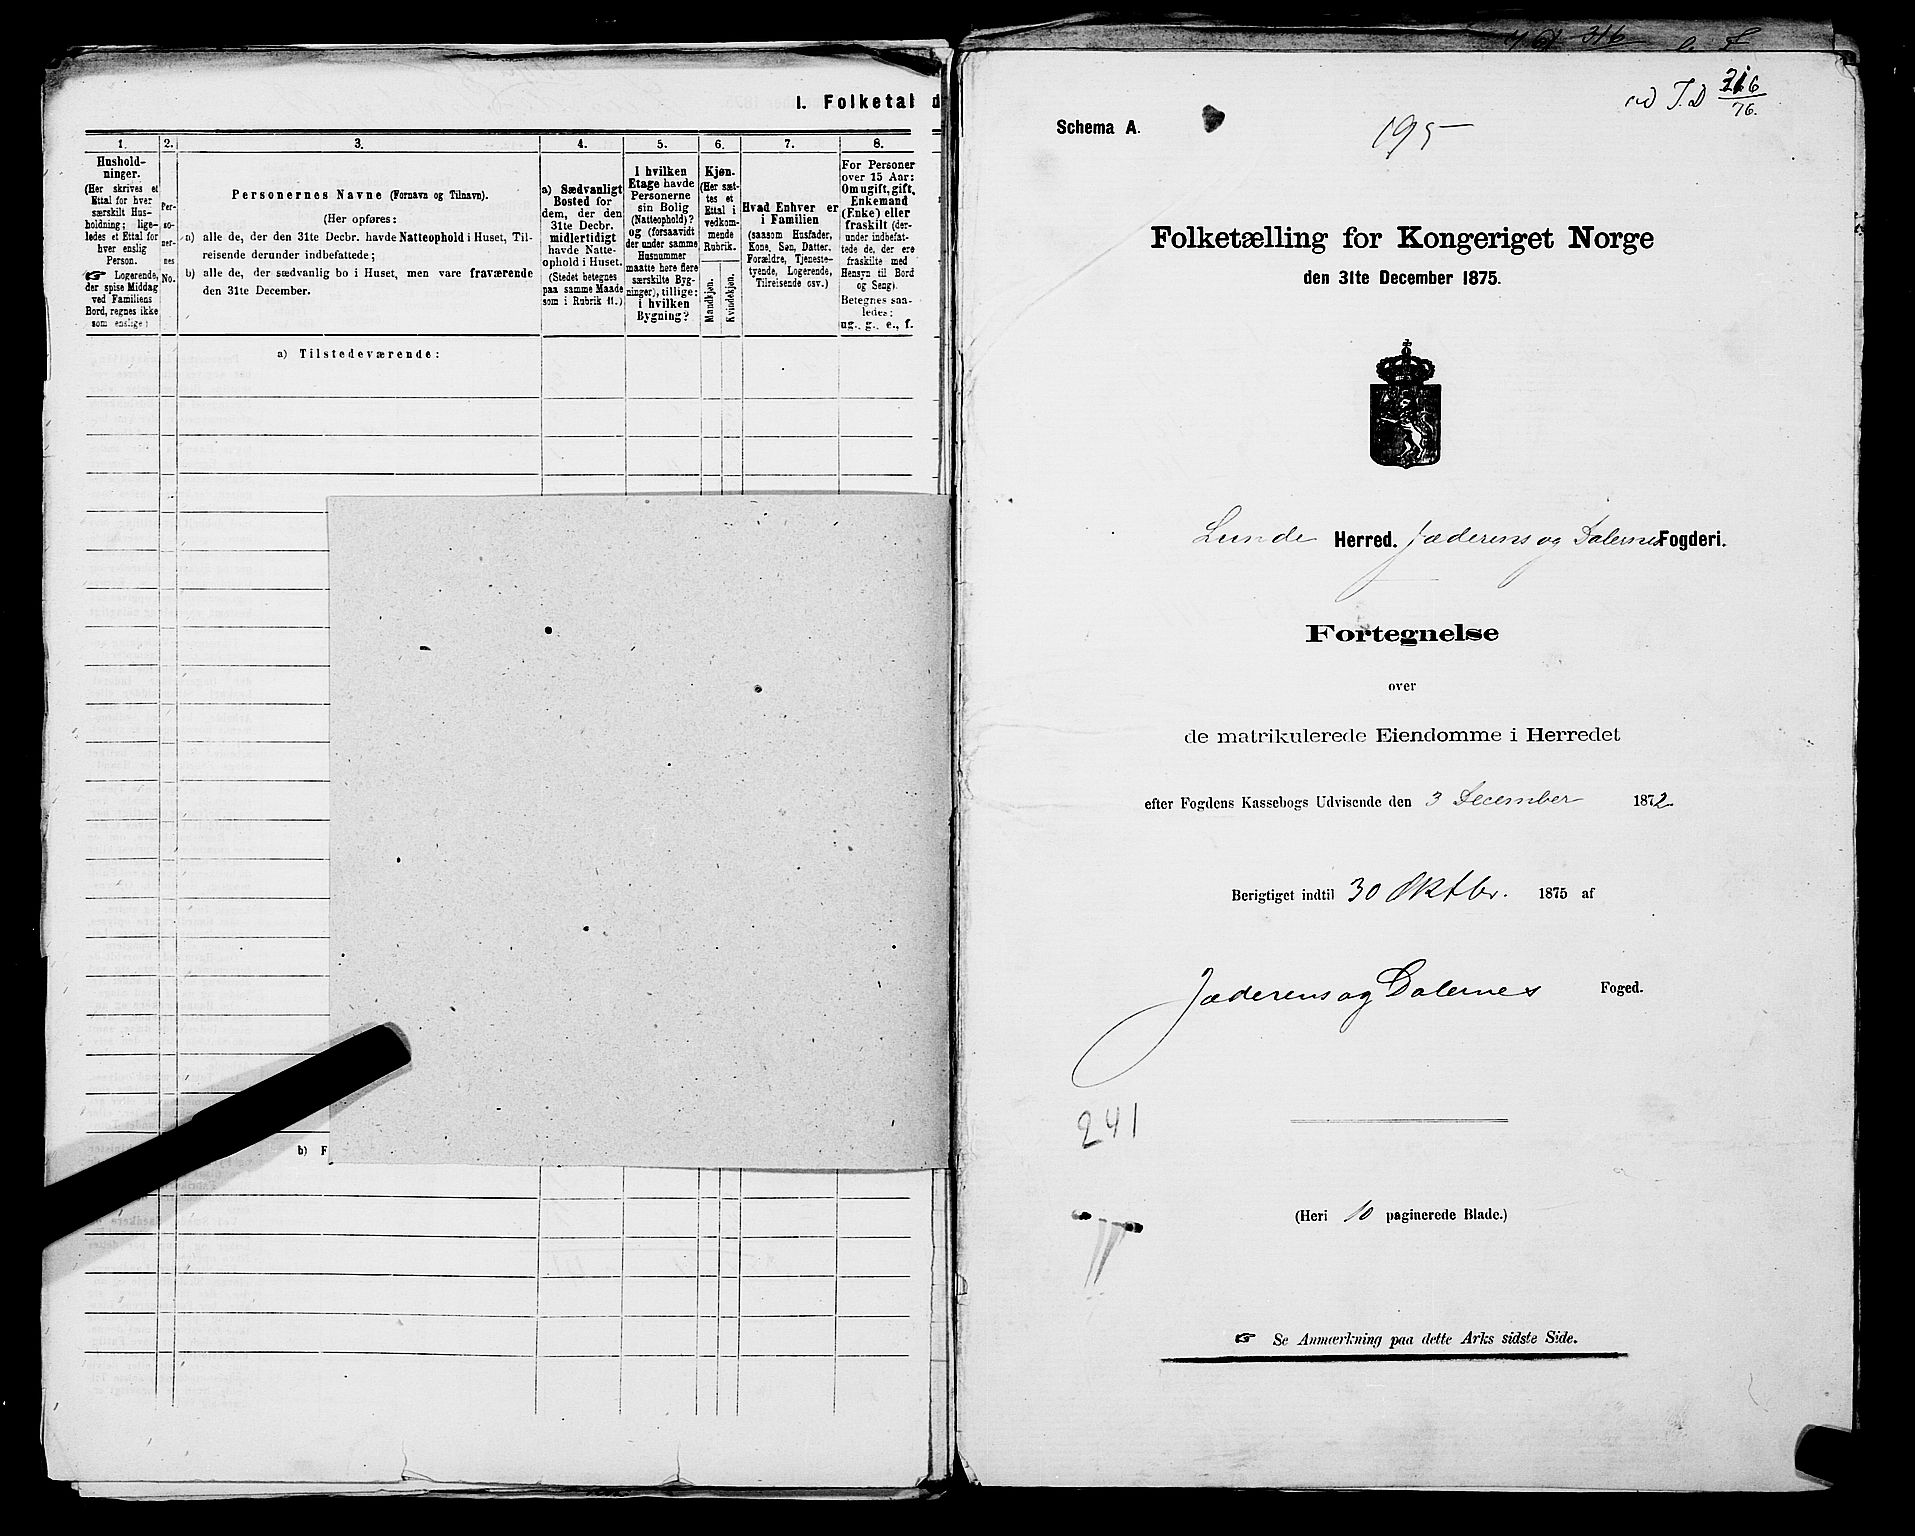 I. Folketal d
1.
2.
3.
4.
5.
6.
7.
8.
Hushold-
ninger.
(Her skrives et
Ettal for hver
særskilt Hus-
holdning; lige-
ledes et Ettal for
hver enslig
Person.
☞ Logerende,
der spise Middag
ved Familiens
Bord, regnes ikke
som enslige)
Per-
so-
ner-
nes
No.
Personernes Navne (Fornavn og Tilnavn).
(Her opføres:
a) alle de, der den 31te Decbr. havde Natteophold i Huset, Til-
reisende derunder indbefattede;
b) alle de, der sædvanlig bo i Huset, men vare fraværende
den 31te December.
a) Sædvanligt
Bosted for
dem, der den
31te Decbr.
midlertidigt
havde Natte-
ophold i Huset.
(Stedet betegnes
paa samme Maade
som i Rubrik 11.)
I hvilken
Etage havde
Personerne
sin Bolig
(Natteophold)?
og (forsaavidt
der under samme
Husnummer
maatte høre flere
særskilte Byg-
ninger), tillige:
i hvilken
Bygning?
Kjøn.
(Her sæt-
tes et
Ettal i
vedkom-
mende
Rubrik.
Mandkjøn.
Kvindekjøn.
Hvad Enhver er
i Familien
(saasom Husfader,
Kone, Søn, Datter,
Forældre, Tjeneste-
tyende, Logerende,
Tilreisende osv.)
For Personer
over 15 Aar:
Om ugift, gift,
Enkemand
(Enke) eller
fraskilt (der-
under indbefat-
tede de, der ere
fraskilte med
Hensyn til Bord
og Seng).
Betegnes saa-
ledes:
ug., g., e., f.
a) Tilstedeværende:
b) F
316
T.D 316
76.
Schema A.
195
Folketælling for Kongeriget Norge
den 31te December 1875.
Lunde Herred. Jæderens og Dalernes Fogderi.
Fortegnelse
over
de matrikulerede Eiendomme i Herredet
efter Fogdens Kassebogs Udvisende den 3 December 1872.
Berigtiget indtil 30 Oktbr. 1875 af
Jæderens og Dalernes Foged.
241
(Heri 10 paginerede Blade.)
☞ Se Anmærkning paa dette Arks sidste Side.